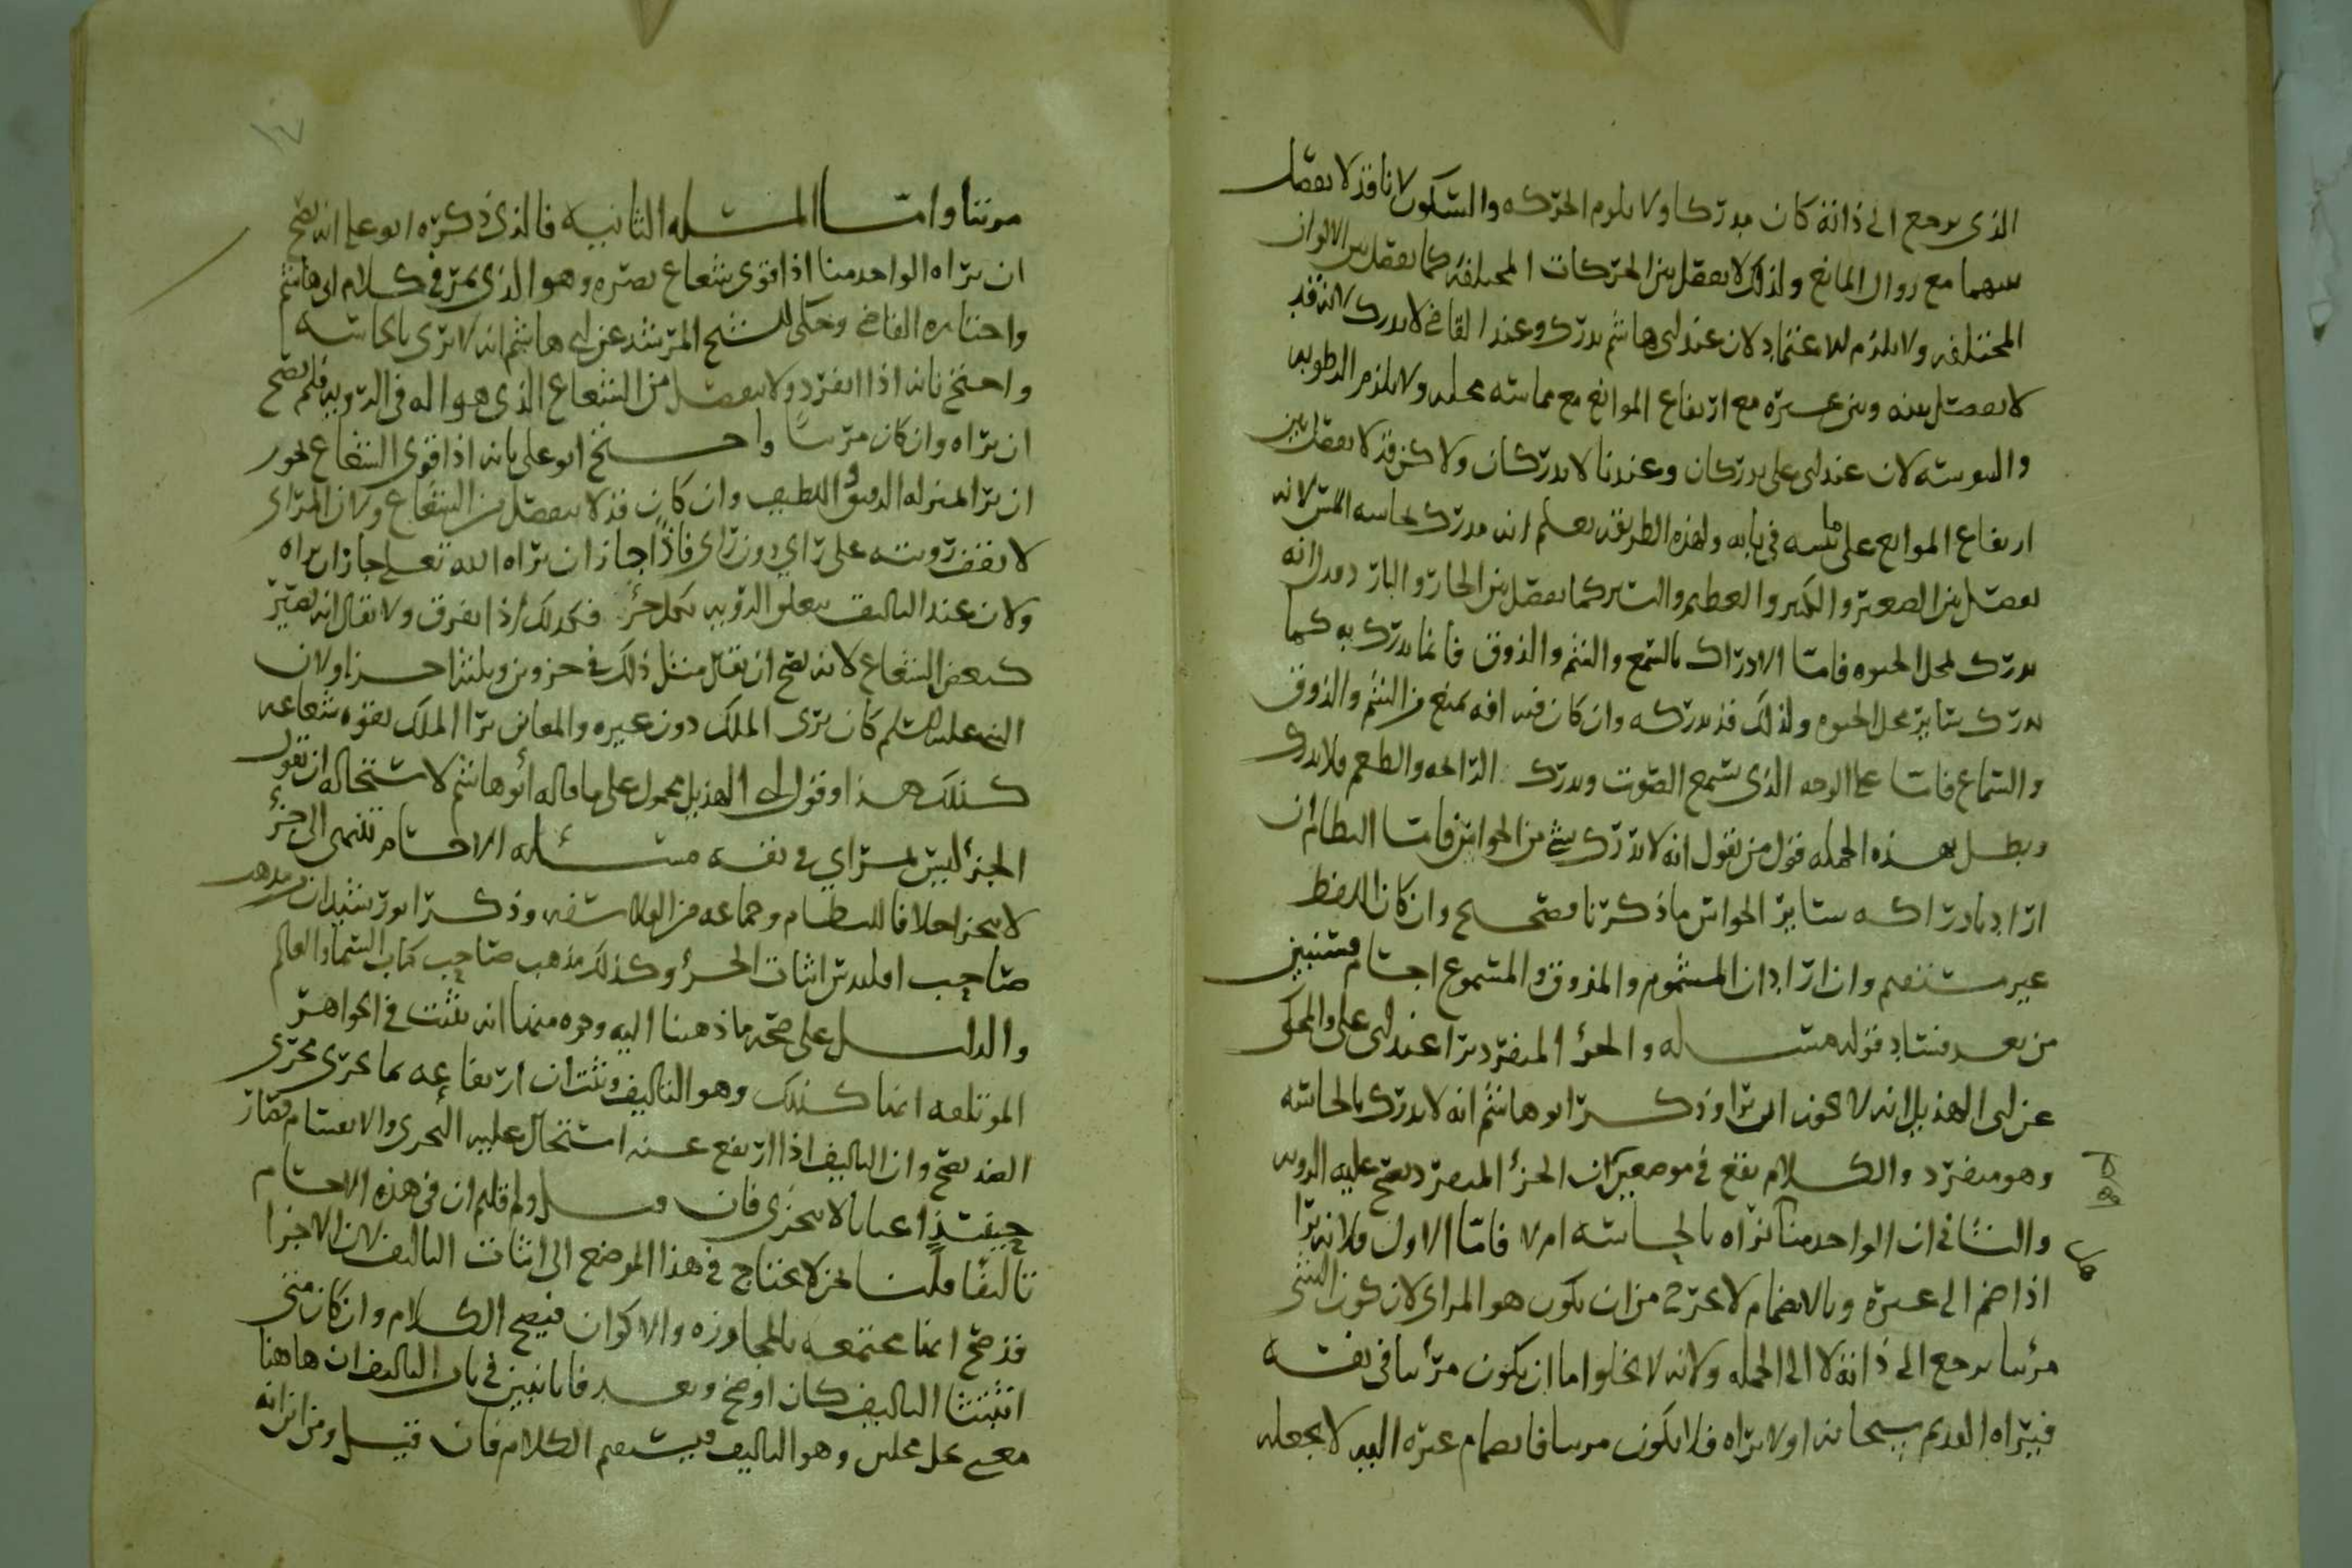 الذي يرجع الى ذاته كان مدركا ولا يلزم الحركه والسكون لانا قد لا نفصل
بينهما مع زوال المانع ولذلك لا نفصل بين الحركات المختلفه كما نفصل بين الالوان
المختلفه ولا يلزم الاعتماد لان عند ابي هاشم يدرك وعند القاضي لا يدرك لانه قد
لا يفصل بينه وبين غيره مع ارتفاع الموانع مع مماسه محله ولا يلزم الرطوبه
واليبوسه لان عند ابي علي يدركان وعندنا لا يدركان ولاكن قد لا يفصل بين
ارتفاع الموانع على ما نبينه في بابه ولهذه الطريقه نعلم انه مدرك بحاسه اللمس لانه
يفصل بين الصغير والكبير والعظيم واليسير كما يفصل بين الحار والبارد ومدرانه
يدرك لمحل الحيوه فاما الادراك بالسمع والشم والذوق فانما يدرك به كما
يدرك بسائر محل الحيوه ولذلك قد يدركه وان كان فيه افه تمنع من الشم والذوق
والسماع فاما على الوجه الذي يسمع الصوت ويدرك الرائحه والطعم فلا يدرك
ويبطل بهذه الجمله قول من يقول انه لا يدرك بشي من الحواس فاما النظام ان
اراد بادراكه بسائر الحواس ما ذكرنا فصحيح وان كان اللفظ
غير مستقيم وان اراد ان المشموم والمذوق والمسموع اجسام فسنبين
من بعد فساد قوله مسئله والجزؤ المنفرد يرا عند ابي علي والمحكي
عن ابي الهذيل انه لا يجوز ان يرا وذكر ابو هاشم انه لا يدرك بالحاسه
وهو منفرد والكلام يقع في موضعين ان الجزؤ المنفرد يصح عليه الرويه
والثاني ان الواحد منا يراه بالحاسه ام لا فاما الاول فلانه يرا
اذا ضم الى غيره وبالانضمام لا يخرج من ان يكون هو المراي لان كون الشي
مرئيا يرجع الى ذاته لا الى الجمله ولانه لا يخلوا اما ان يكون مرئيا في نفسه
فيراه القديم سبحانه او لا يراه فلا يكون مرئيا فانضمام غيره اليه لا يجعله
١٧
مرئيا واما المسئله الثانيه فالذي ذكره ابو علي انه يصح
ان يراه الواحد منا اذا قوي شعاع بصره وهو الذي يمر في كلام ابي هاشم
واختاره القاضي وحكى الشيخ المرشد عن ابي هاشم انه لا يرى بالحاسه
واحتج بانه اذا انفرد ولا ينفصل من الشعاع الذي هو اله في الرويه فلم يصح
ان يراه وان كان مرئيا واحتج ابو علي بانه اذا قوي الشعاع يجوز
ان يرا لمنزله الدقيق واللطيف وان كان قد لا ينفصل من الشعاع ولان المراي
لا تقف رويته على راي دون راي فاذا جاز ان يراه الله تعلى جاز ان يراه
ولان عند التاليف يتعلق الرويه بكل جزؤ فكذلك اذا تفرق ولا يقال انه يصير
كبعض الشعاع لانه يصح ان يقال مثل ذلك في جزوين وثلثه اجزا ولان
النبي عليه السلم كان يرى الملك دون غيره والمعاين يرا الملك لقوه شعاعه
كذلك هذا وقول ابي الهذيل محمول على ما قاله ابو هاشم لاستحاله ان يقول
الجزؤ ليس بمراي في نفسه مسئله الاجسام تنتهي الى جزؤ
لا يتجزا خلافا للنظام وجماعه من الفلاسفه وذكر ابو رشيد ان مذهب
صاحب اقليدس اثبات الجزؤ وكذلك مذهب صاحب كتاب السما والعالم
والدليل على صحه ما ذهبنا اليه وجوه منها انه يثبت في الجواهر
الموتلفه انها كذلك وهو التاليف ويثبت ان ارتفاعه بما يجرى مجرى
الضد يصح وان التاليف اذا ارتفع عنه استحال عليه التجزي والانقسام فصار
حينئذ اعيانا لا يتجزى فان قيل ولم قلتم ان في هذه الاجسام
تاليفا قلنا نحن لا نحتاج في هذا الموضع الى اثبات التاليف لان الاجزا
قد صح انها مجتمعه بالمجاوره والاكوان فيصح الكلام وان كان متى
اثبتنا التاليف كان اوضح وبعد فانا نبين في باب التاليف ان هاهنا
معنى يحل محلين وهو التاليف فيستقيم الكلام فان قيل ومن اين انه